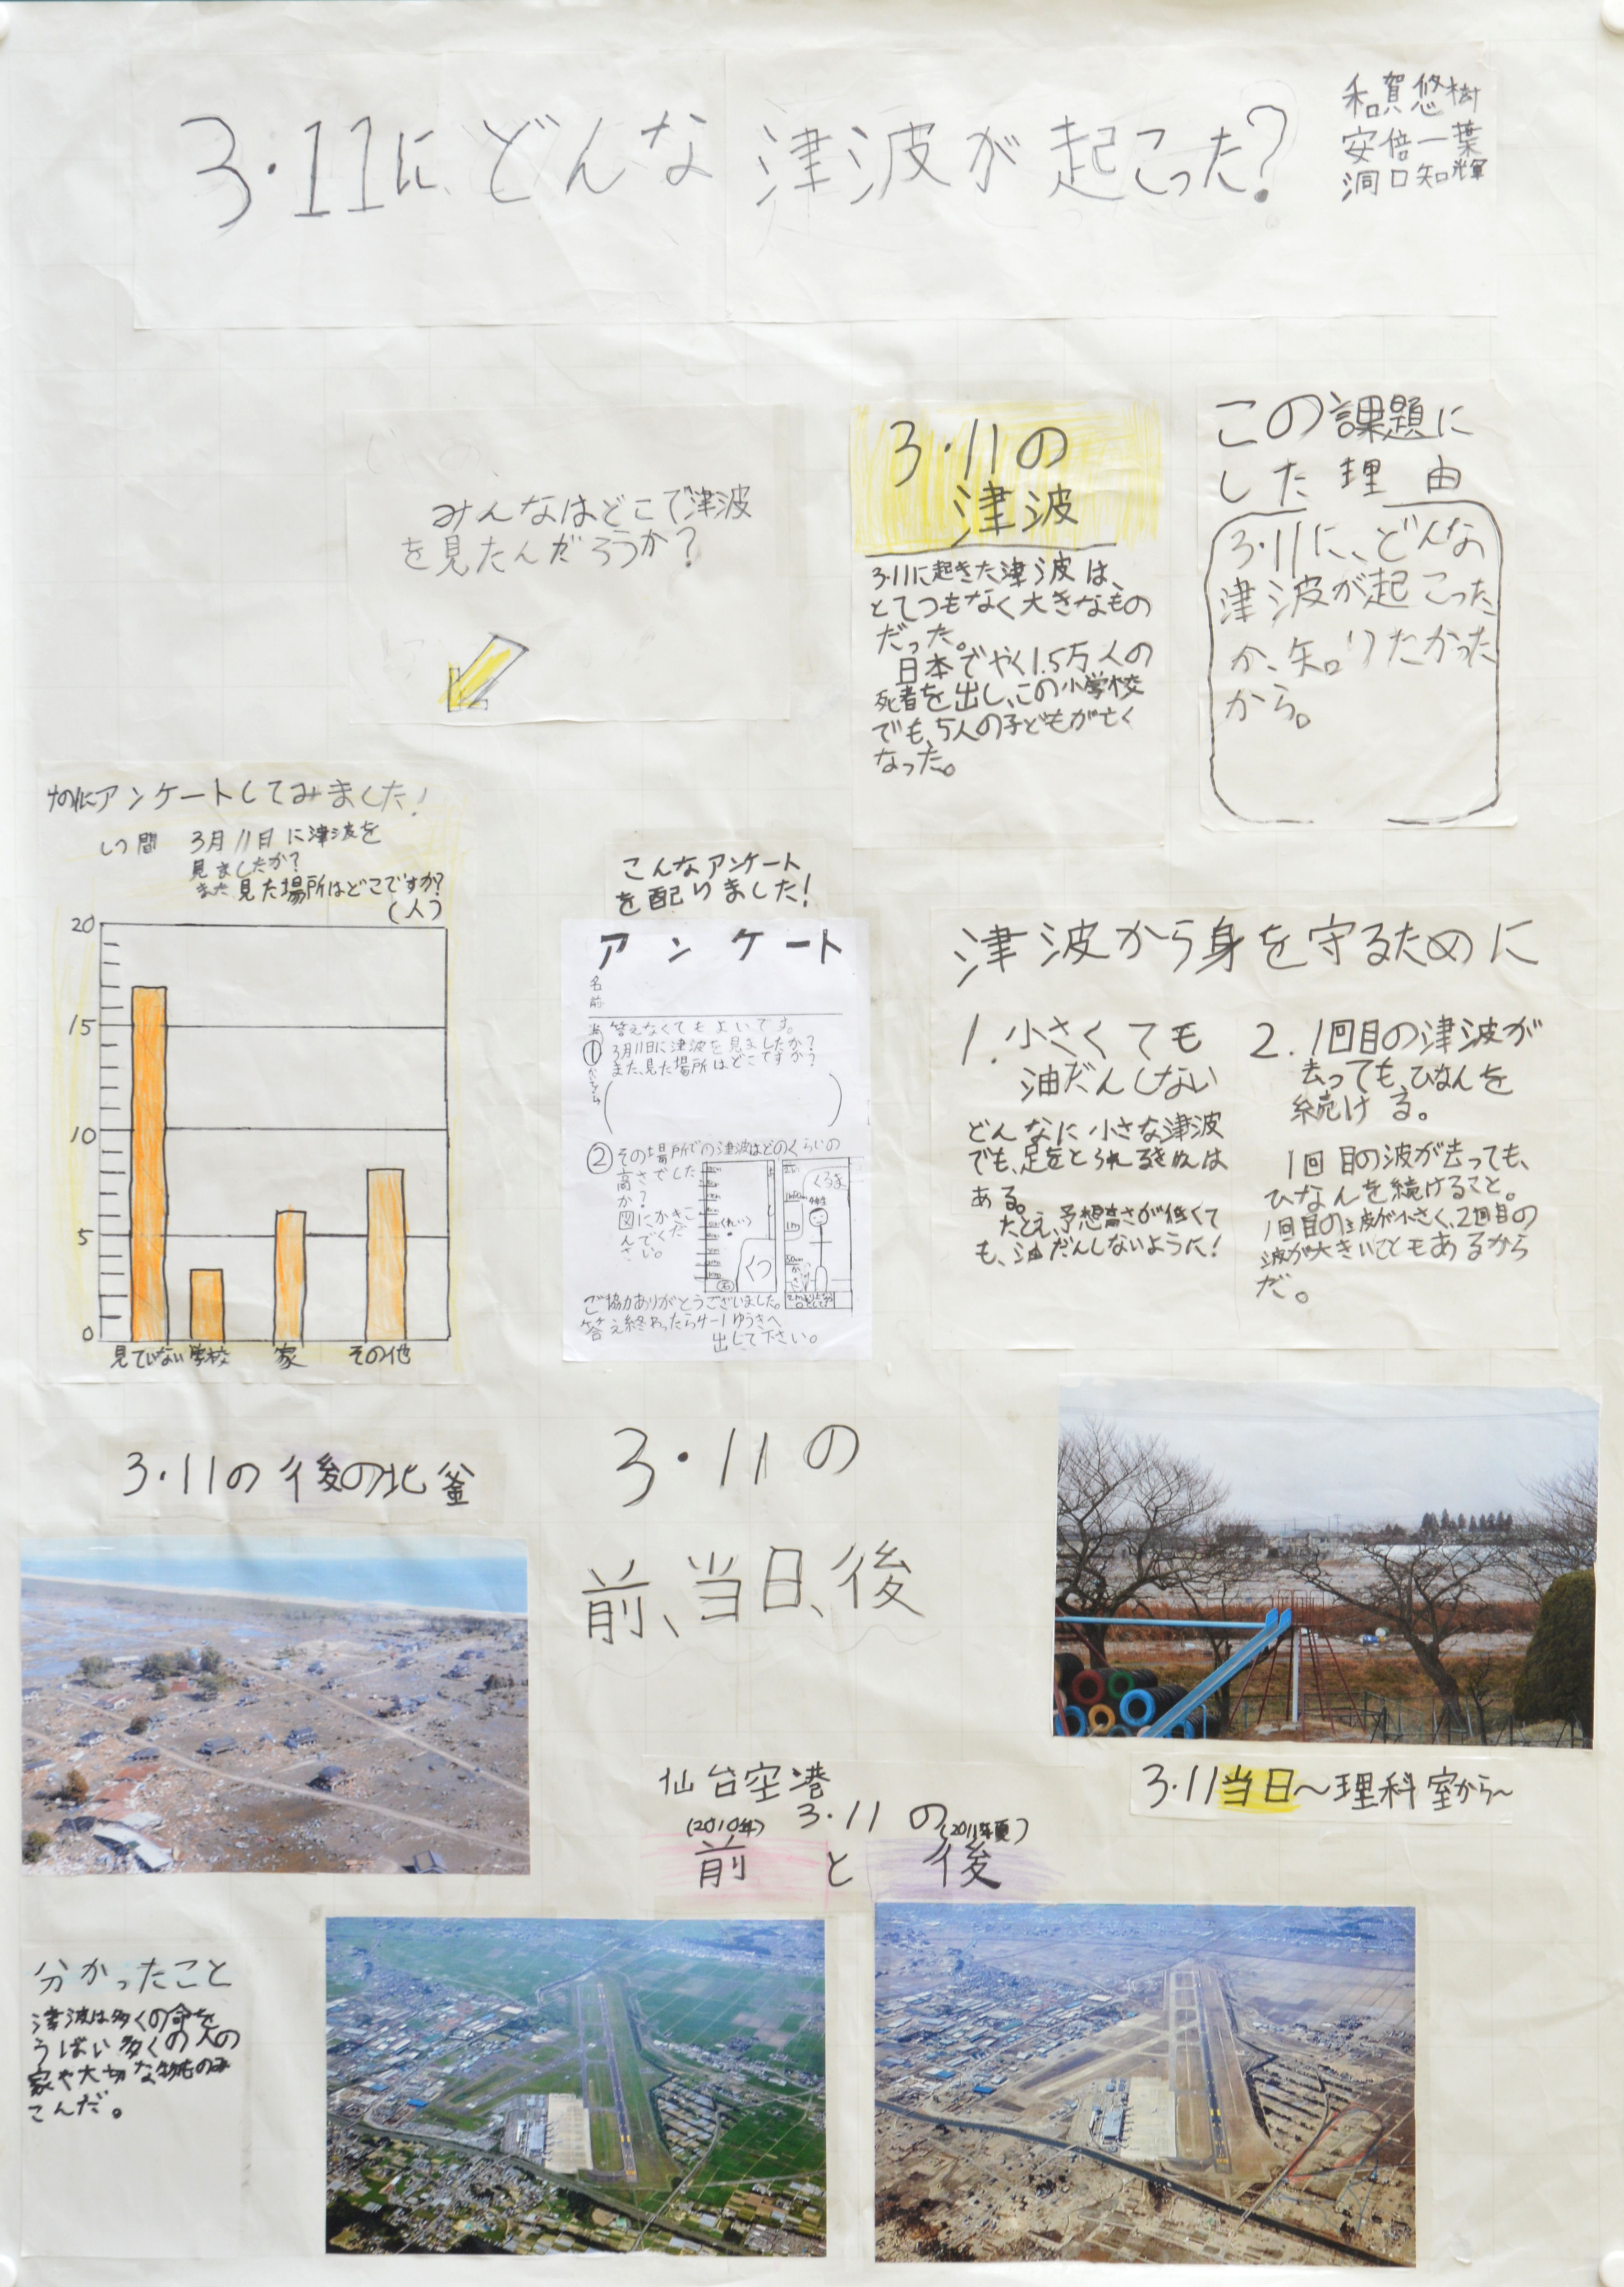 3・11にどんな津波が起こった?
和賀悠樹
安倍一葉
洞口知輝
この課題に
した理由
3・11に、どんな
津波が起こった
か、知りたかった
から。
3・11の
津波
3・11に起きた津波は、
とてつもなく大きなもの
だった。
日本でやく1.5万人の
死者を出し、この小学校
でも、5人の子どもが亡く
なった。
みんなはどこで津波
を見たんだろうか?
アンケートしてみました!
しつ問 3月11日に津波を
見ましたか?
また見た場所はどこですか?
(人)
20
15
10
5
0
見ていない 学校 家 その他
こんなアンケート
を配りました!
アンケート
名
前
答えなくてもよいです。
① 3月11日に津波を見ましたか?
また、見た場所はどこですか?
( )
② その場所での津波はどのくらいの
高さでした
か?
図にかきこ
んでくだ
さい。
くつ
くるま
1m
ご協力ありがとうございました。
答え終わったら4-1ゆうきへ
出して下さい。
津波から身を守るために
1. 小さくても
油だんしない
どんなに小さな津波
でも、足をとられるきけんは
ある。
たとえ、予想高さが低くて
も、油だんしないように!
2. 1回目の津波が
去っても、ひなんを
続ける。
1回目の波が去っても、
ひなんを続けること。
1回目の波が小さく、2回目の
波が大きいこともあるから
だ。
3・11の後の北釜
3・11の
前、当日、後
3・11当日~理科室から~
仙台空港
3・11の
(2010年) (2011年夏)
前と後
分かったこと
津波は多くの命を
うばい多くの人の
家や大切な物をのみ
こんだ。